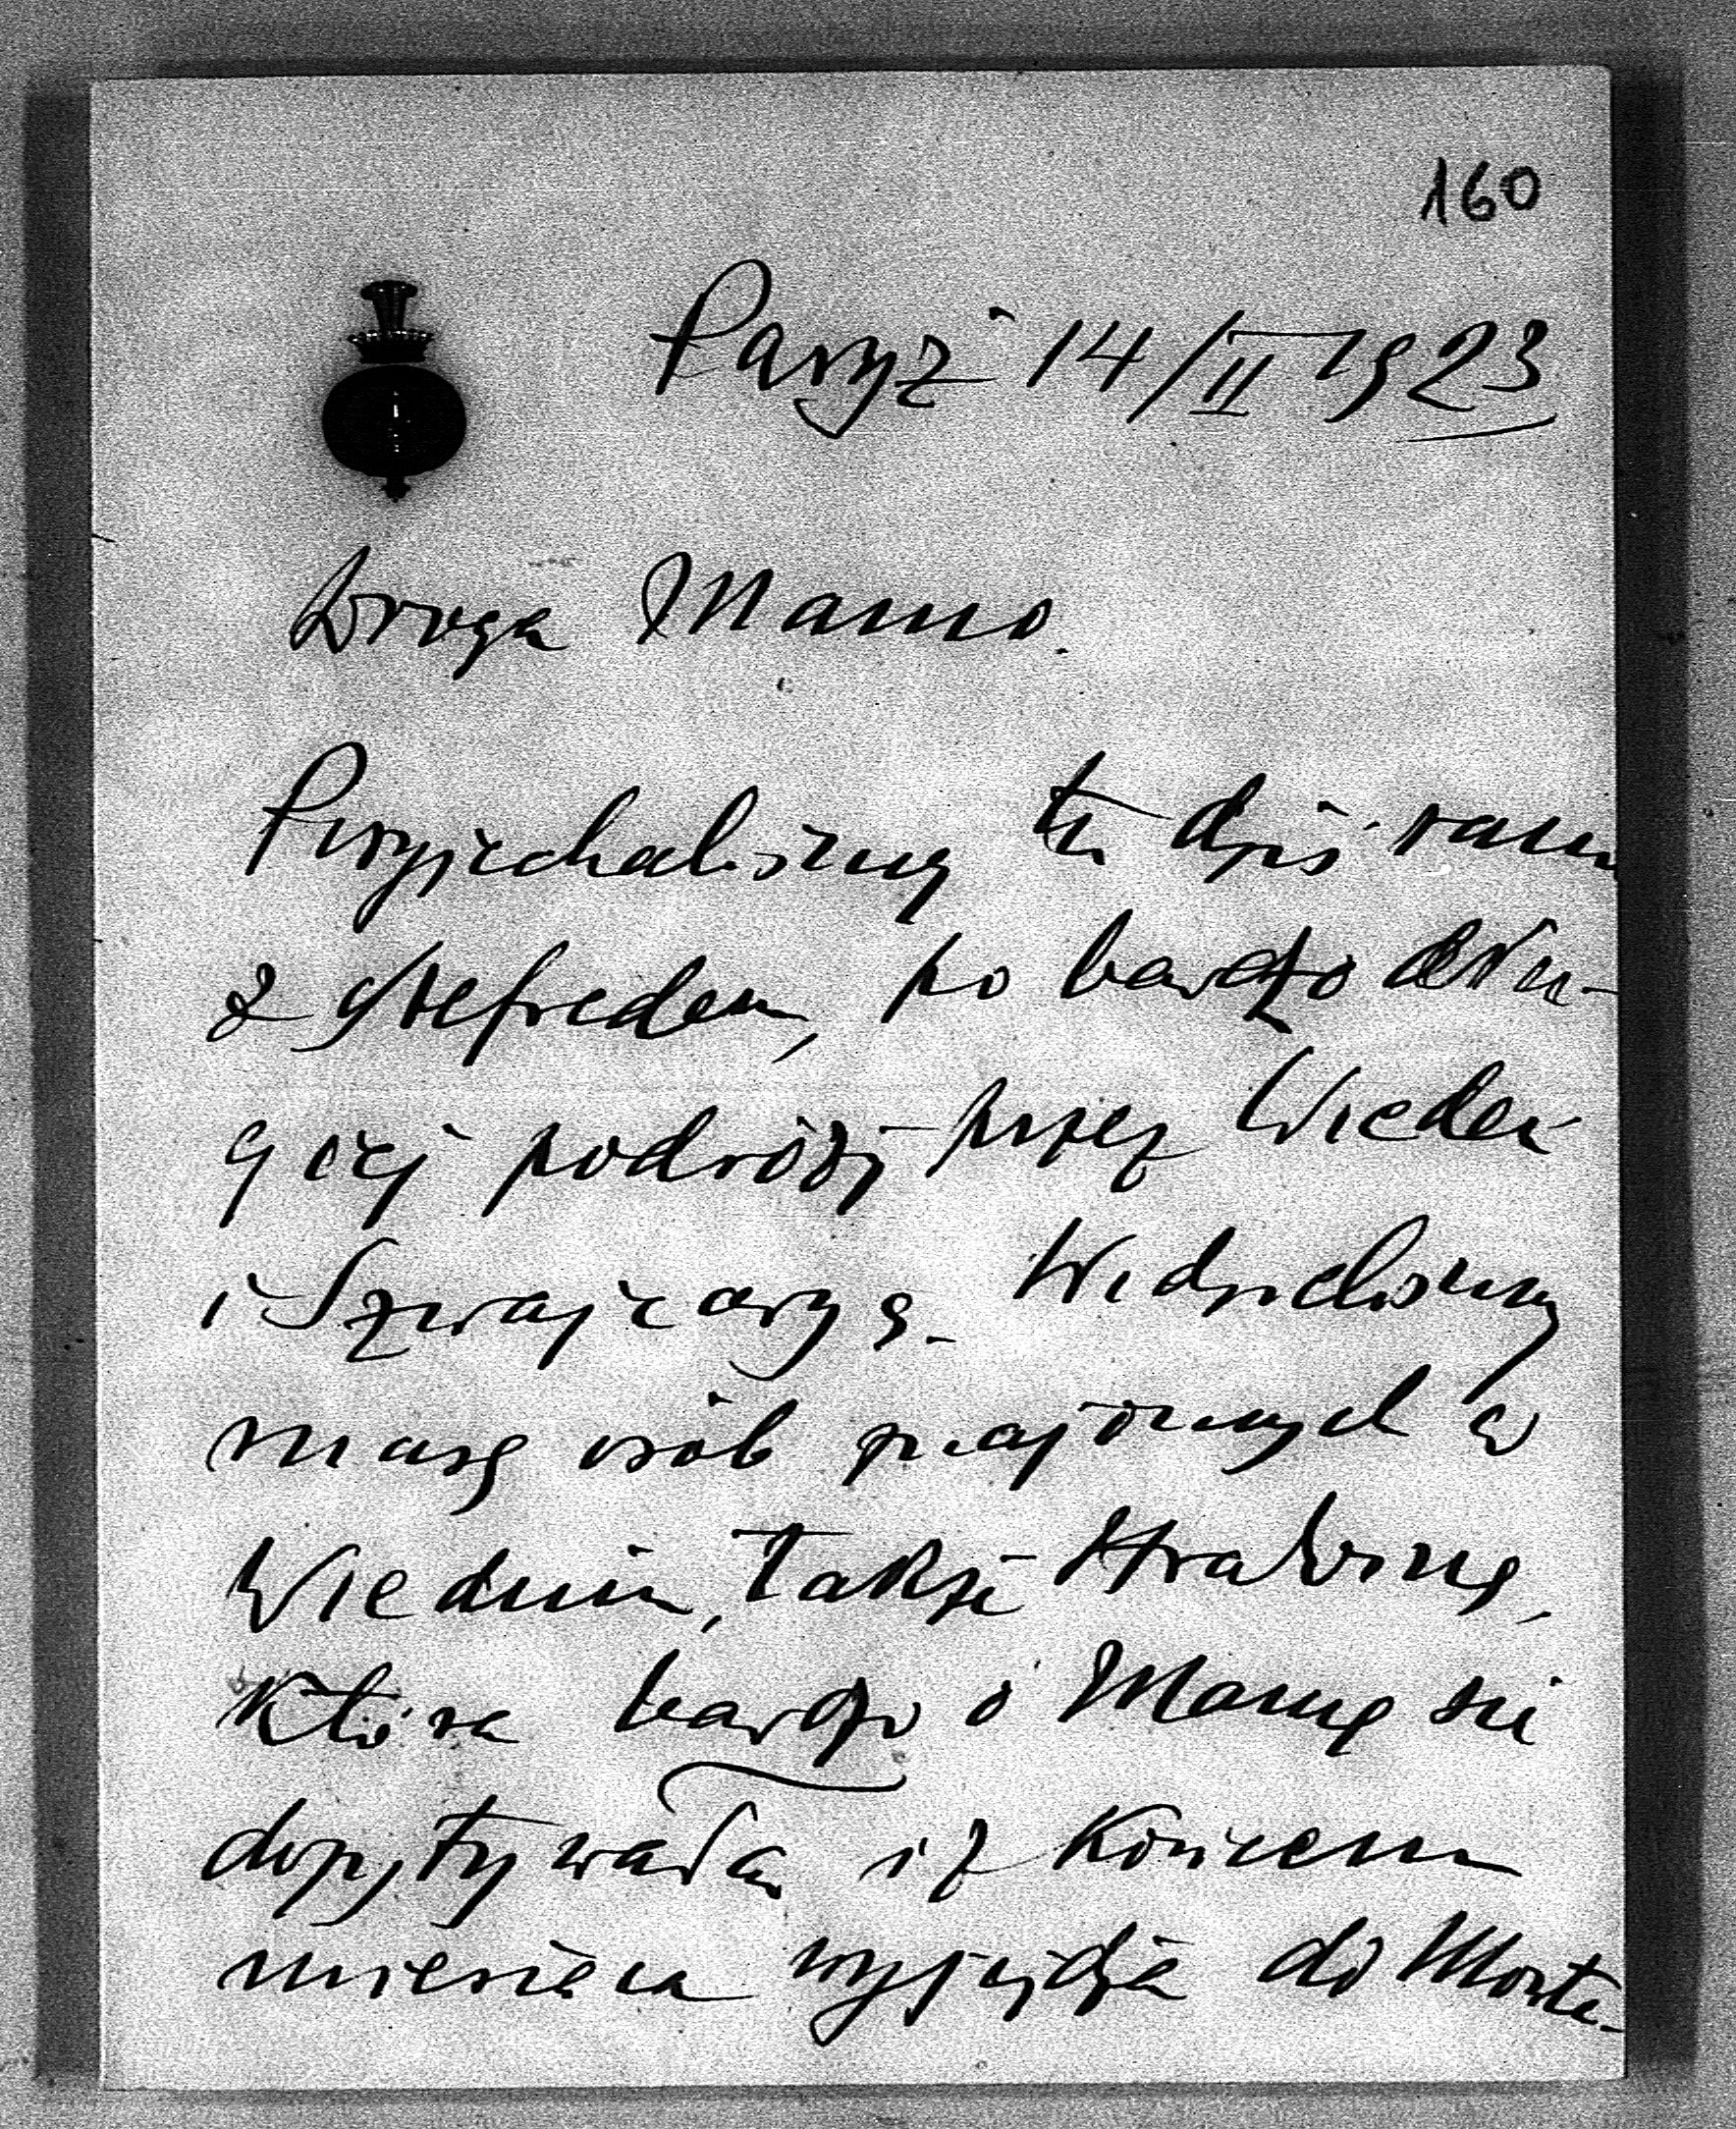 160
Paryż 14/II 1923
Droga Mamo.
Przyjechaliśmy tu dziś rano
z Alefredem, po bardzo dłu-
giej podróży przez Wiedeń
i Szwajcaryę. Widzieliśmy
masę osób znajomych w
Wiedniu, także Hrabinę,
która bardzo o Mamę się
dopytywała i z końcem
miesiąca wyjeżdża do Monte-